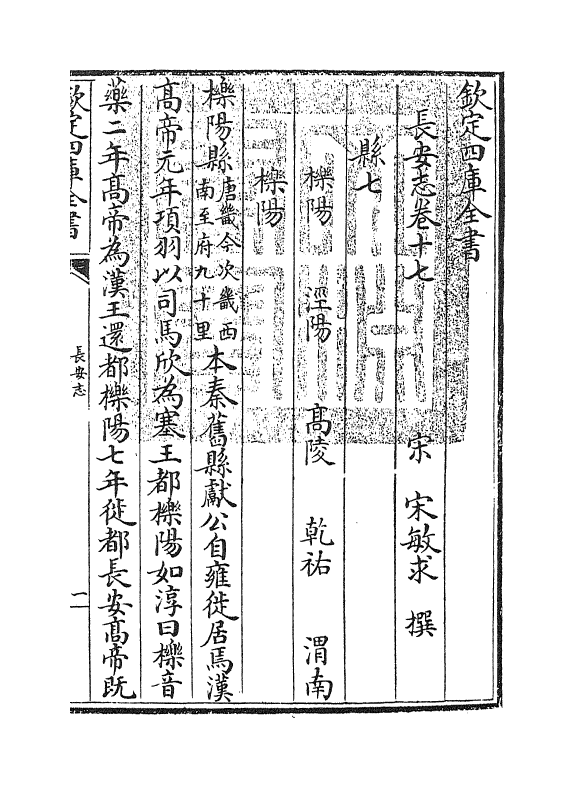 欽定四庫全書
長安志卷十七
宋 宋敏求 撰
縣七
櫟陽 涇陽 高陵 乾祐 渭南
櫟陽
櫟陽縣唐畿今次畿西南至府九十里本秦舊縣獻公自雍徙居焉漢
高帝元年項羽以司馬欣為塞王都櫟陽如淳曰櫟音
藥二年高帝為漢王還都櫟陽七年徙都長安高帝既
欽定四庫全書
長安志